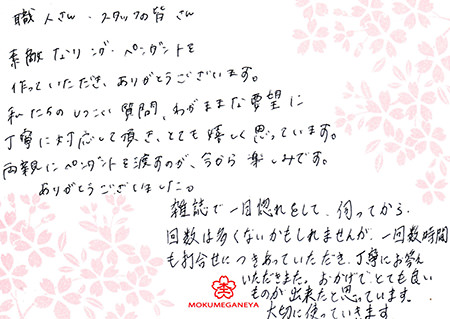 職人さん・スタッフの皆さん
素敵なリング・ペンダントを
作っていただき、ありがとうございます。
私たちのしつこい質問、わがままな要望に
丁寧に対応して頂き、とても嬉しく思っています。
両親にペンダントを渡すのが、今から楽しみです。
ありがとうございました。
雑誌で一目惚れをして、伺ってから
回数は多くないかもしれませんが、一回数時間
も打合せにつきあっていただき、丁寧にお答え
いただきました。おかげでとても良い
ものが出来たと思っています。
大切に使っていきます
MOKUMEGANEYA